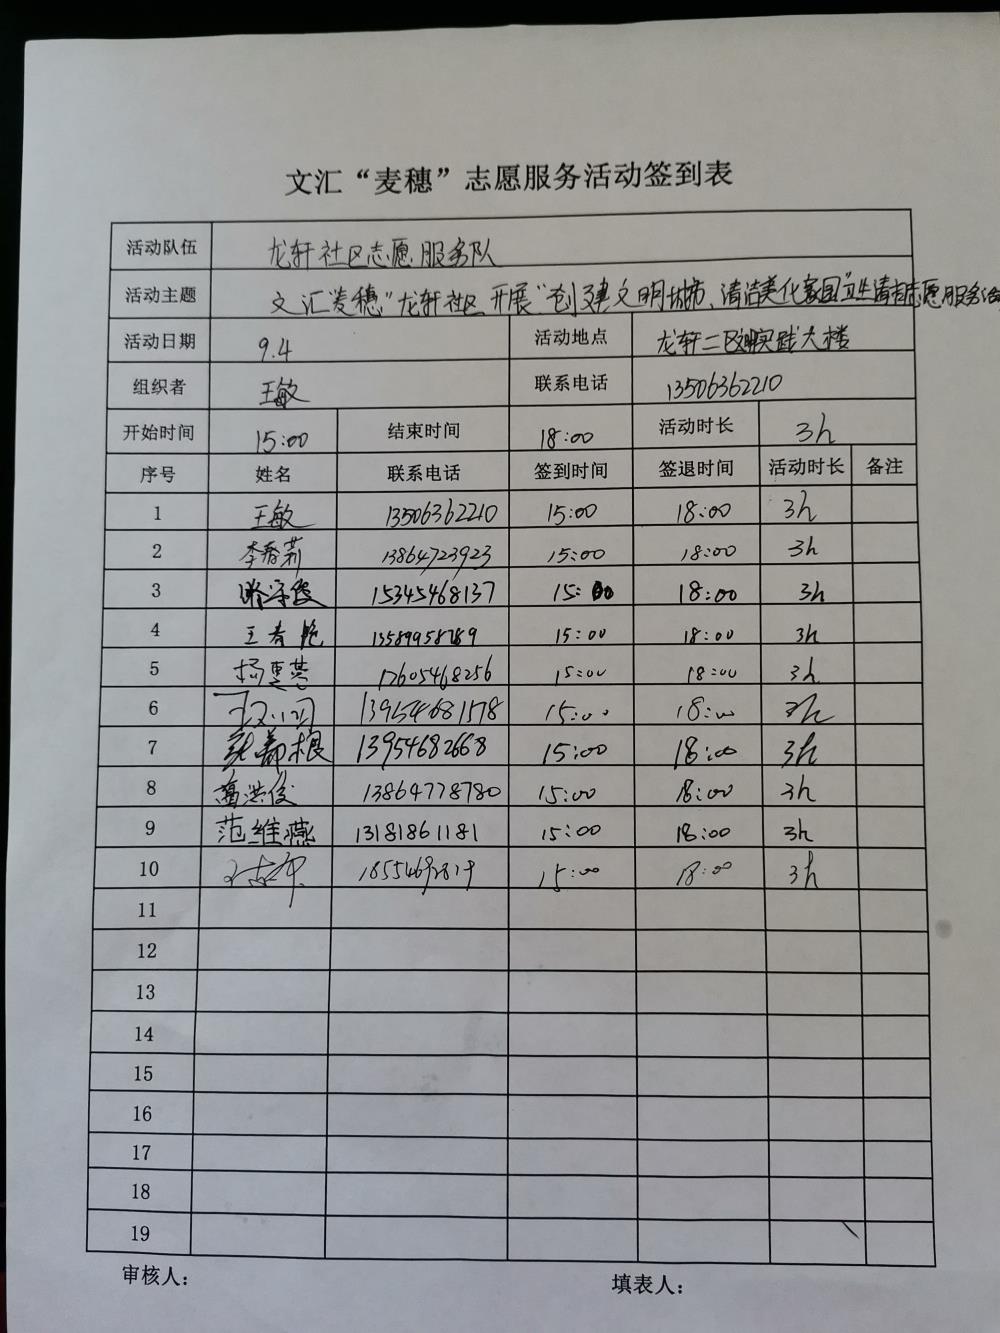 文汇“麦穗”志愿服务活动签到表
活动队伍 龙轩社区志愿服务队
活动主题 文汇"麦穗"龙轩社区开展"创建文明城市、清洁美化家园"卫生清洁志愿服务活
活动日期 9.4 活动地点 龙轩二区实践大楼
组织者 王敏 联系电话 13506362210
开始时间 15:00 结束时间 18:00 活动时长 3h
序号 姓名 联系电话 签到时间 签退时间 活动时长 备注
1 王敏 13506362210 15:00 18:00 3h
2 李春莉 13864723923 15:00 18:00 3h
3 15345468137 15:00 18:00 3h
4 王春艳 13589958789 15:00 18:00 3h
5 杨惠 17605468256 15:00 18:00 3h
6 13954681578 15:00 18:00 3h
7 13954682668 15:00 18:00 3h
8 葛洪俊 13864778780 15:00 18:00 3h
9 范维燕 13181861181 15:00 18:00 3h
10 15:00 18:00 3h
11
12
13
14
15
16
17
18
19
审核人： 填表人：